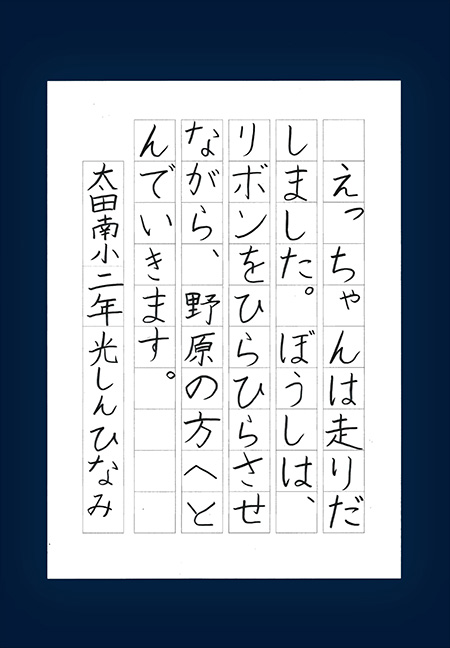 えっちゃんは走りだ
しました。ぼうしは、
リボンをひらひらさせ
ながら、野原の方へと
んでいきます。
太田南小二年光しんひなみ